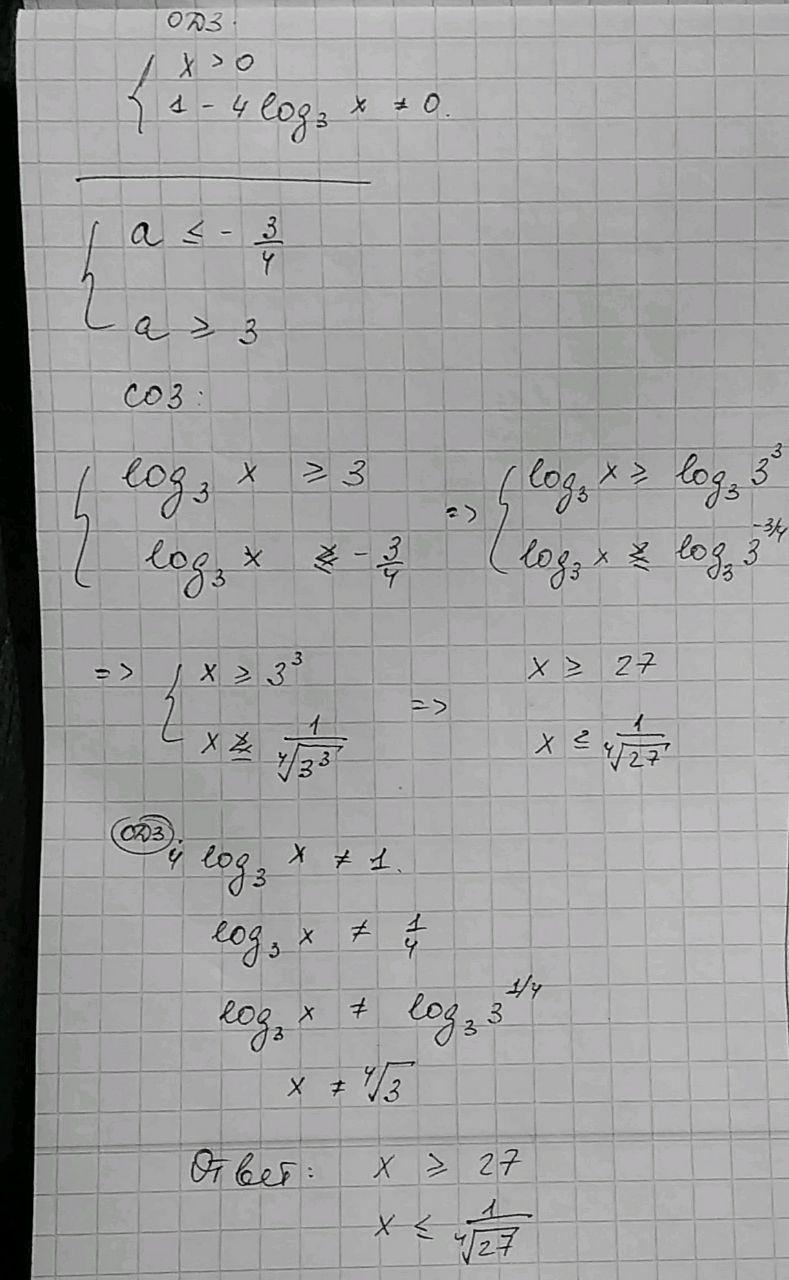 ОДЗ:
{ x > 0
{ 1 - 4 log₃ x ≠ 0.
{ a ≤ - 3/4
{ a ≥ 3
СОЗ:
{ log₃ x ≥ 3 => { log₃ x ≥ log₃ 3³
{ log₃ x ≤ - 3/4 { log₃ x ≤ log₃ 3^(-3/4)
=> { x ≥ 3³ => x ≥ 27
{ x ≤ 1/⁴√3³ x ≤ 1/⁴√27
ОДЗ:
4 log₃ x ≠ 1.
log₃ x ≠ 1/4
log₃ x ≠ log₃ 3^(1/4)
x ≠ ⁴√3
Ответ: x ≥ 27
x ≤ 1/⁴√27